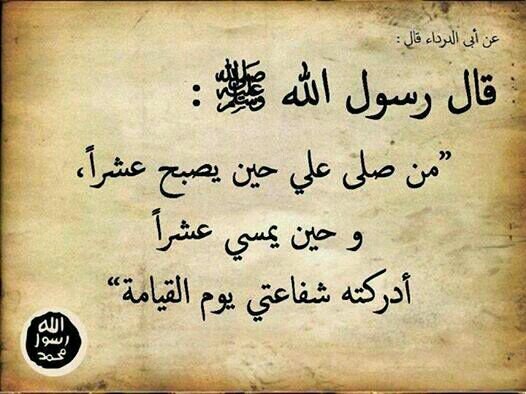 عن أبي الدرداء قال :
قال رسول الله ﷺ :
”من صلى علي حين يصبح عشراً،
و حين يمسي عشراً
أدركته شفاعتي يوم القيامة“
الله
رسول
محمد